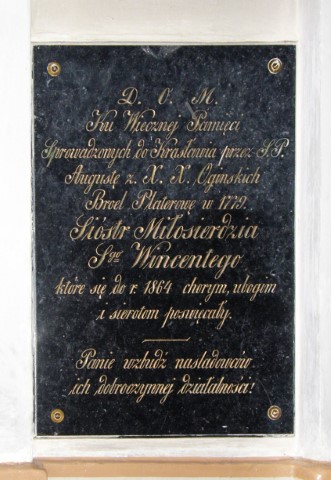 D. O. M.
Ku Wiecznej Pamięci
Sprowadzonych do Krasławia przez S.P.
Augustę z X. X. Ogińskich
Broel Platerowę w 1779.
Sióstr Miłosierdzia
Sgo Wincentego
które się do r. 1864 chorym, ubogim
i sierotom poswięcały.
Panie wzbudź nasladowców
ich dobroczynnej działalności!